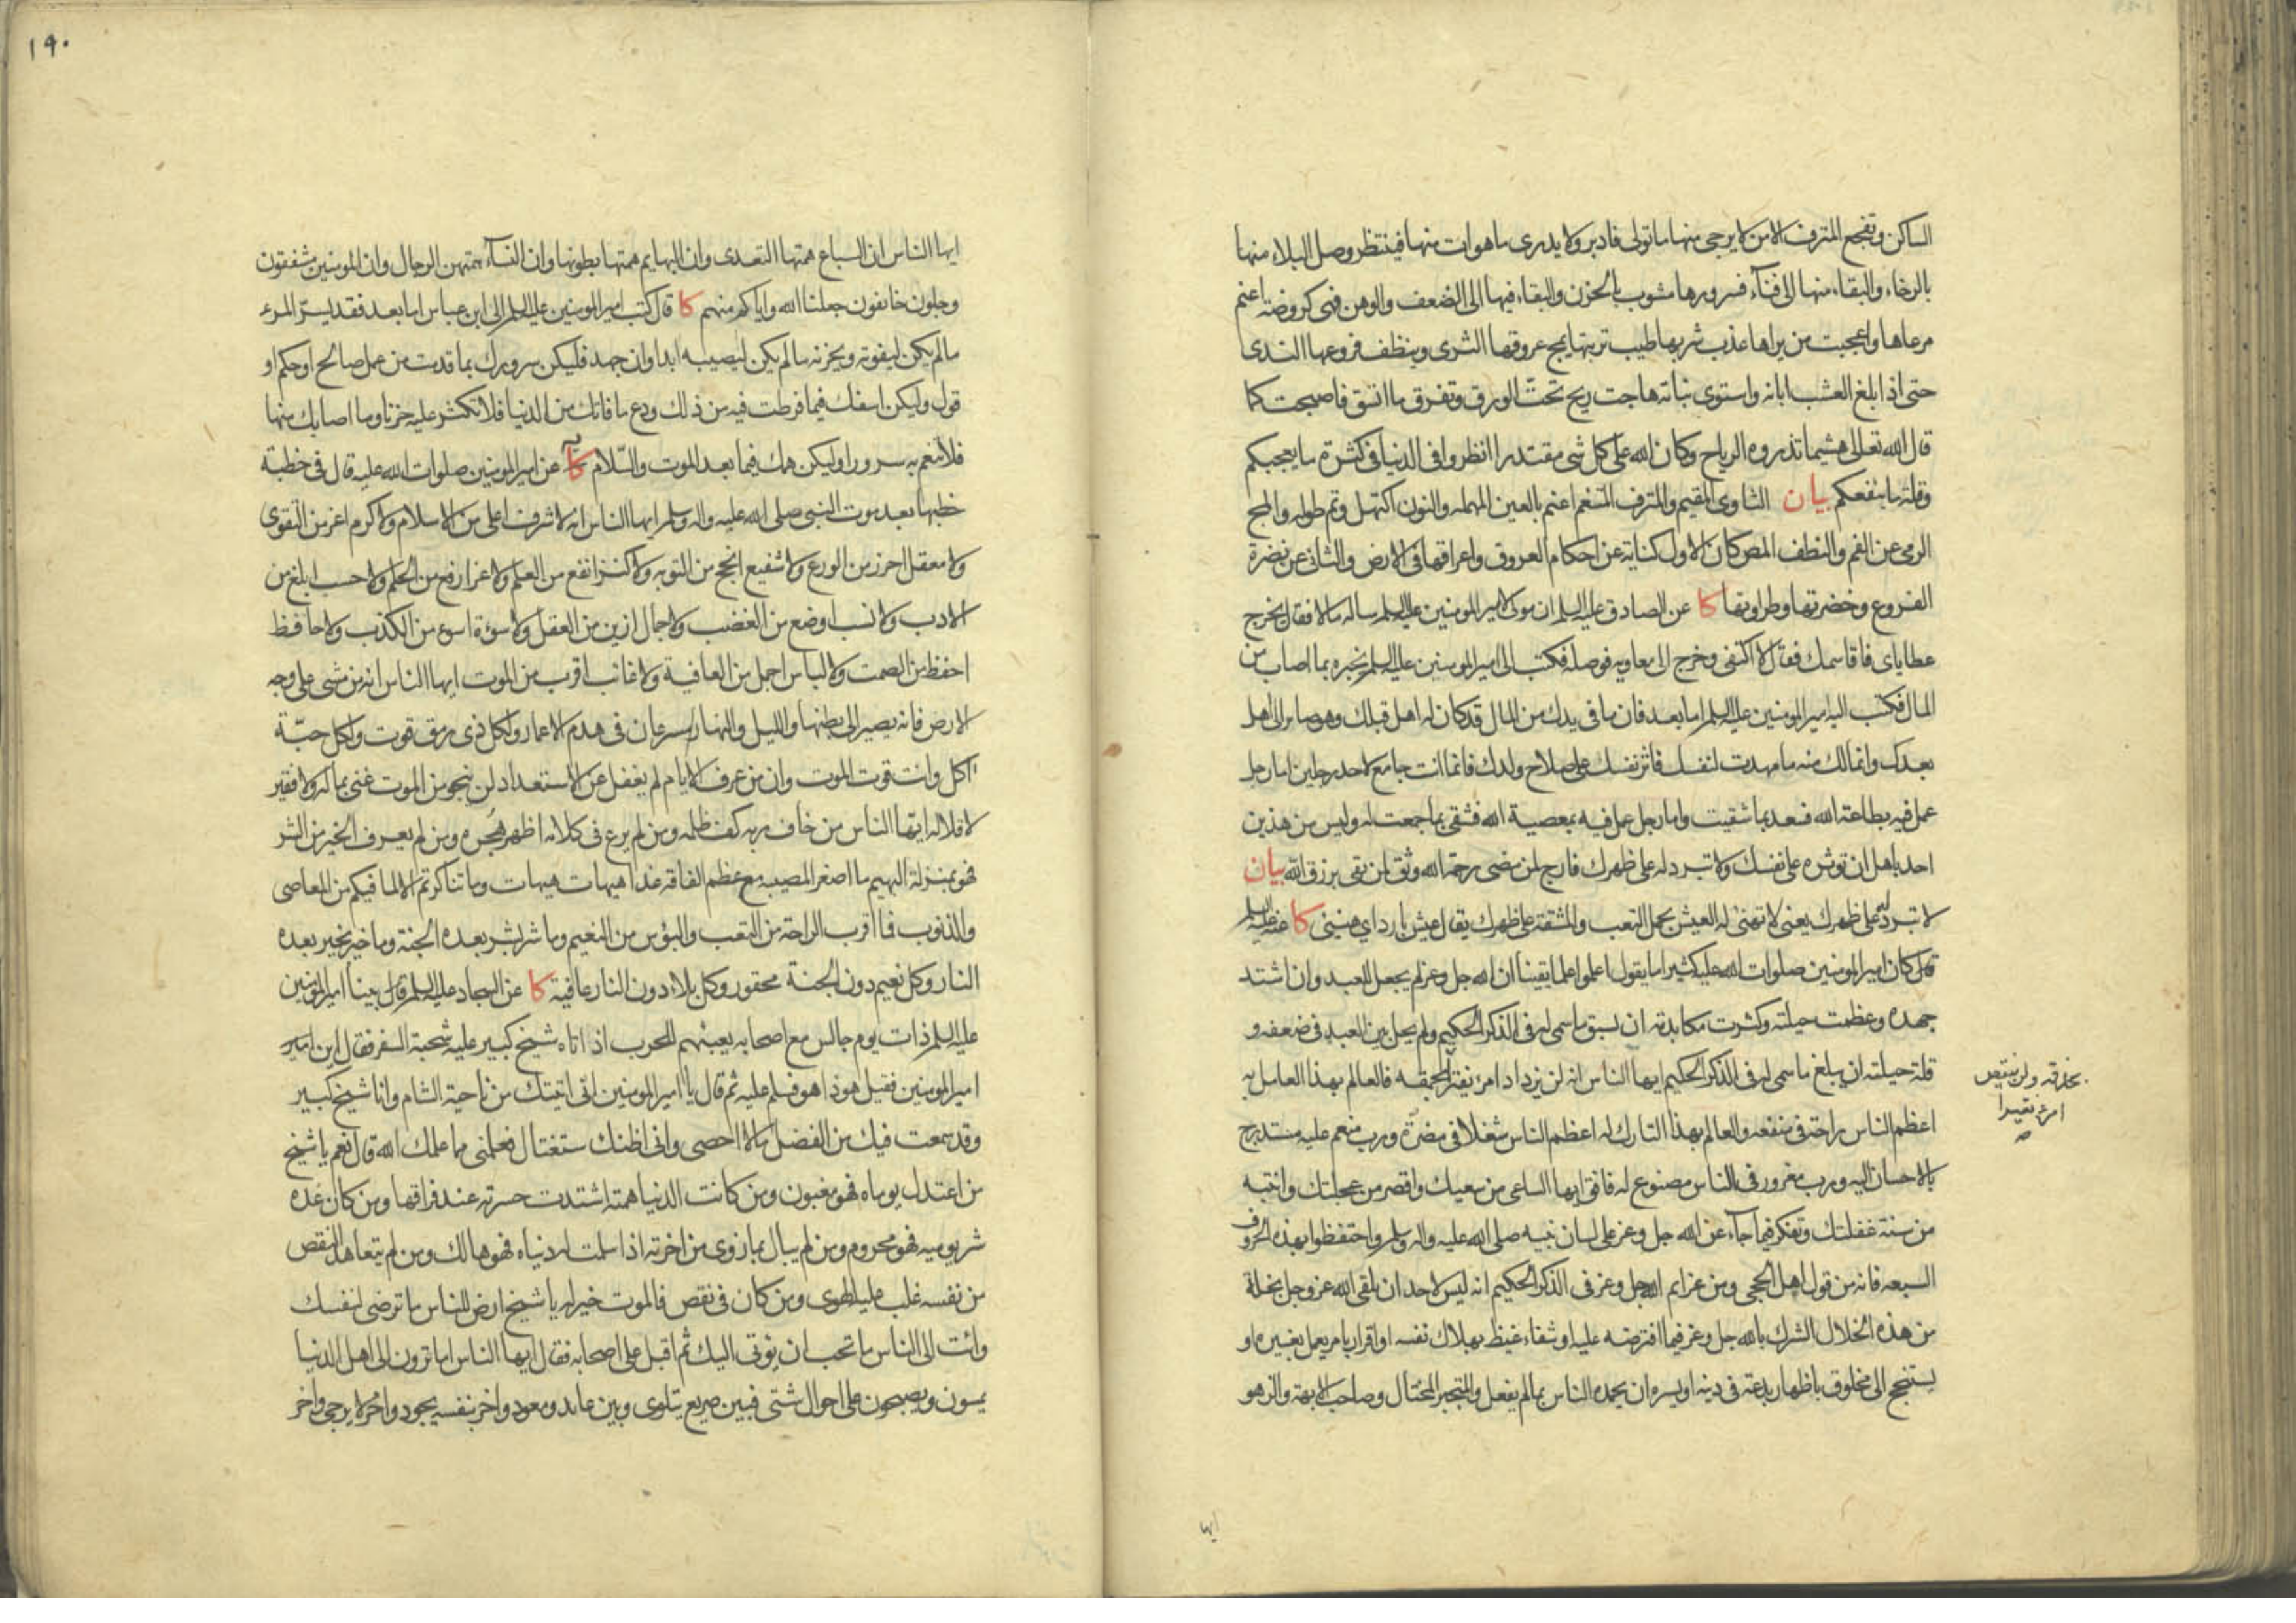 الساكن وتفجع المترف الامن لا يرجى منها ما تولى فادبر ولا يدرى ما هوات منها فينتظر وصل البلاء منها
بالرخاء والبقاء منها الى فناء فسرورها مشوب بالحزن والبقاء فيها الى الضعف والوهن فهى كروضة اعتم
مرعاها واعجبت من يراها عذب شربها طيب تربتها يمج عروقها الثرى وينظف فروعها الندى
حتى اذا بلغ العشب ابانه واستوى نباته هاجت ريح تحت الورق وتفرق ما اتسق فاصبحت كما
قال الله تعالى هشيما تذروه الرياح وكان الله على كل شى مقتدرا انظروا فى الدنيا فى كثرة ما يعجبكم
وقلة ما ينفعكم بيان الثاوى المقيم والمترف المتنعم اعتم بالعين المهمله والنون اكتهل وتم طوله والمج
الرمى عن الفم والنطف المص كان الاول كناية عن احكام العروق واعراقها فى الارض والثانى عن نضرة
الفروع وخضرتها وطراوتها كا عن الصادق عليه السلم ان مولى لامير المومنين عليه السلم ساله مالا فقال يخرج
عطاياى فاقاسمك فقال لا اكتفى وخرج الى معاويه فوصله فكتب الى امير المومنين عليه السلم يخبره بما اصاب من
المال فكتب اليه امير المومنين عليه السلم اما بعد فان ما فى يدك من المال قد كان له اهل قبلك وهو صاير الى اهل
بعدك وانما لك منه ما مهدت لنفسك فاثر نفسك على صلاح ولدك فانما انت جامع لاحد رجلين اما رجل
عمل فيه بطاعة الله فسعد بما شقيت واما رجل عمل فيه بمعصية الله فشقى بما جمعت له وليس من هذين
احد باهل ان توثره على نفسك ولا تبرد له على ظهرك فارج لمن مضى رحمة الله وثق لمن بقى برزق الله بيان
لا تبرد له على ظهرك يعنى لا تهنئ له العيش بحمل التعب والمشقة على ظهرك يقال عيش بارد اي هنيئ كا عنه عليه السلم
قال كان امير المومنين صلوات الله عليه كثيرا ما يقول اعلموا علما يقينا ان الله جل وعز لم يجعل للعبد وان اشتد
جهده وعظمت حيلته وكثرت مكابدته ان يسبق ما سمى له فى الذكر الحكيم ولم يحل بين العبد فى ضعفه و
قلة حيلته ان يبلغ ما سمى له فى الذكر الحكيم ايها الناس انه لن يزداد امرء نقيرا بحمقه فالعالم بهذا العامل به
بحذقه ولن ينتقص
امرء نقيرا
صه
اعظم الناس راحة فى منفعه والعالم بهذا التارك له اعظم الناس شغلا فى مضرة ورب منعم عليه مستدرج
بالاحسان اليه ورب مغرور فى الناس مصنوع له فافق ايها الساعى من سعيك واقصر من عجلتك وانتبه
من سنة غفلتك وتفكر فيما جاء عن الله جل وعز على لسان نبيه صلى الله عليه واله وسلم واحتفظوا بهذه الحروف
السبعه فانه من قول اهل الحجى ومن عزايم الله جل وعز فى الذكر الحكيم انه ليس لاحد ان يلقى الله عز وجل بخلة
من هذه الخلال الشرك بالله جل وعز فيما افترضه عليه او شفاء غيظ بهلاك نفسه او اقرار بامر يعمل بغيره او
يستنجح الى مخلوق باظهار بدعة فى دينه او يسره ان يحمده الناس بما لم يفعل والمتجبر المختال وصاحب الابهة والزهو
ايها
١٩٠
ايها الناس ان السباع همتها التعدى وان البهايم همتها بطونها وان النساء همتهن الرجال وان المومنين مشفقون
وجلون خايفون جعلنا الله واياكم منهم كا قال كتب امير المومنين عليه السلم الى ابن عباس اما بعد فقد يسر المرء
ما لم يكن ليفوته ويحزنه ما لم يكن ليصيبه ابدا وان جهد فليكن سرورك بما قدمت من عمل صالح او حكم او
قول وليكن اسفك فيما فرطت فيه من ذلك ودع ما فاتك من الدنيا فلا تكثر عليه حزنا وما اصابك منها
فلا تنعم به سرورا وليكن همك فيما بعد الموت والسلام كا عن امير المومنين صلوات الله عليه قال فى خطبة
خطبها بعد موت النبى صلى الله عليه واله وسلم ايها الناس انه لا شرف اعلى من الاسلام ولا كرم اعز من التقوى
ولا معقل احرز من الورع ولا شفيع انجح من التوبه ولا كنز انفع من العلم ولا عز ارفع من الحلم ولا حسب ابلغ من
الادب ولا نسب اوضع من الغضب ولا جمال ازين من العقل ولا سوءة اسوء من الكذب ولا حافظ
احفظ من الصمت ولا لباس اجمل من العافية ولا غائب اقرب من الموت ايها الناس انه من مشى على وجه
الارض فانه يصير الى بطنها والليل والنهار يسرعان فى هدم الاعمار ولكل ذى رمق قوت ولكل حبّة
اكل وانت قوت الموت وان من عرف الايام لم يغفل عن الاستعداد لن ينجو من الموت غنى بماله ولا فقير
لاقلاله ايها الناس من خاف ربه كف ظلمه ومن لم يرع فى كلامه اظهر هجره ومن لم يعرف الخير من الشر
فهو بمنزلة البهيم ما اصغر المصيبه مع عظم الفاقة غدا هيهات هيهات وما تناكرتم الا لما فيكم من المعاصى
والذنوب فما اقرب الراحة من التعب والبؤس من النعيم وما شر بشر بعده الجنة وما خير بخير بعده
النار وكل نعيم دون الجنة محقور وكل بلاء دون النار عافية كا عن السجاد عليه السلم قال بينا امير المومنين
عليه السلم ذات يوم جالس مع اصحابه يعبئهم للحرب اذ اتاه شيخ كبير عليه شحبة السفر فقال اين امير
امير المومنين فقيل هو ذا هو فسلم عليه ثم قال يا امير المومنين انى اتيتك من ناحية الشام وانا شيخ كبير
وقد سمعت فيك من الفضل ما لا احصى وانى اظنك ستغتال فعلمنى مما علمك الله قال نعم يا شيخ
من اعتدل يوماه فهو مغبون ومن كانت الدنيا همته اشتدت حسرته عند فراقها ومن كان غده
شر يوميه فهو محروم ومن لم يبال بما زوى من اخرته اذا سلمت له دنياه فهو هالك ومن لم يتعاهد النقص
من نفسه غلب عليه الهوى ومن كان فى نقص فالموت خير له يا شيخ ارض للناس ما ترضى لنفسك
وائت الى الناس ما تحب ان يوتى اليك ثم اقبل على اصحابه فقال ايها الناس اما ترون الى اهل الدنيا
يمسون ويصبحون على احوال شتى فبين صريع يتلوى وبين عايد ومعود واخر بنفسه يجود واخر لا يرجى واخر